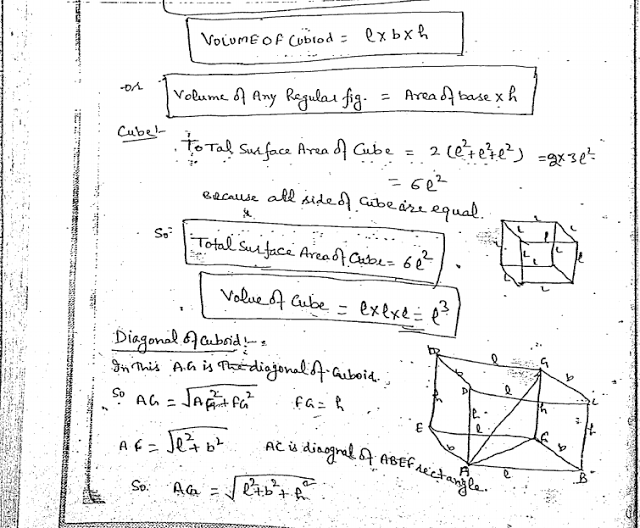 VOLUME OF Cuboid = l x b x h
-or
Volume of Any Regular fig. = Area of base x h
Cube!-
Total Surface Area of Cube = 2 (l²+l²+l²) = 2x3l²
= 6l²
Because all side of Cube are equal.
So Total Surface Area of Cube = 6l²
Value of Cube = l x l x l = l³
Diagonal of Cuboid:-
In this AG is The diagonal of Cuboid.
So AG = √AF²+FG² FG = h
AF = √l²+b² AC is diaognal of ABEF rectangle.
So AG = √l²+b²+h²
L
L
L
L
L
l
l
G
b
D
l
h
E
b
A
l
B